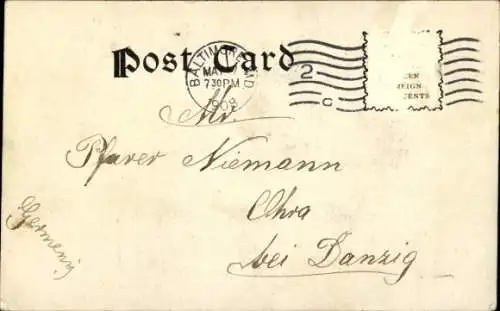 Post Card
BALTIMORE, MD
MAY
7 30 PM
1908
2
C
EN
EIGN
CENTS
Mr.
Pfarer Niemann
Ohra
bei Danzig
Germeniÿ